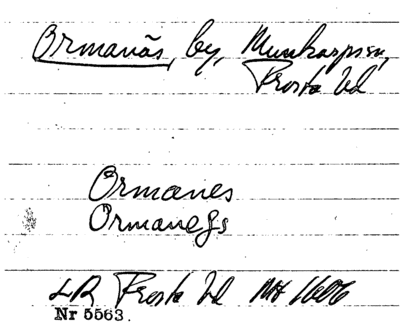 Ormanäs, by, Munkarpsn,
Frosta hd
Ormanes
Ormanefs
LR Frosta hd Mt 1606
Nr 5563.